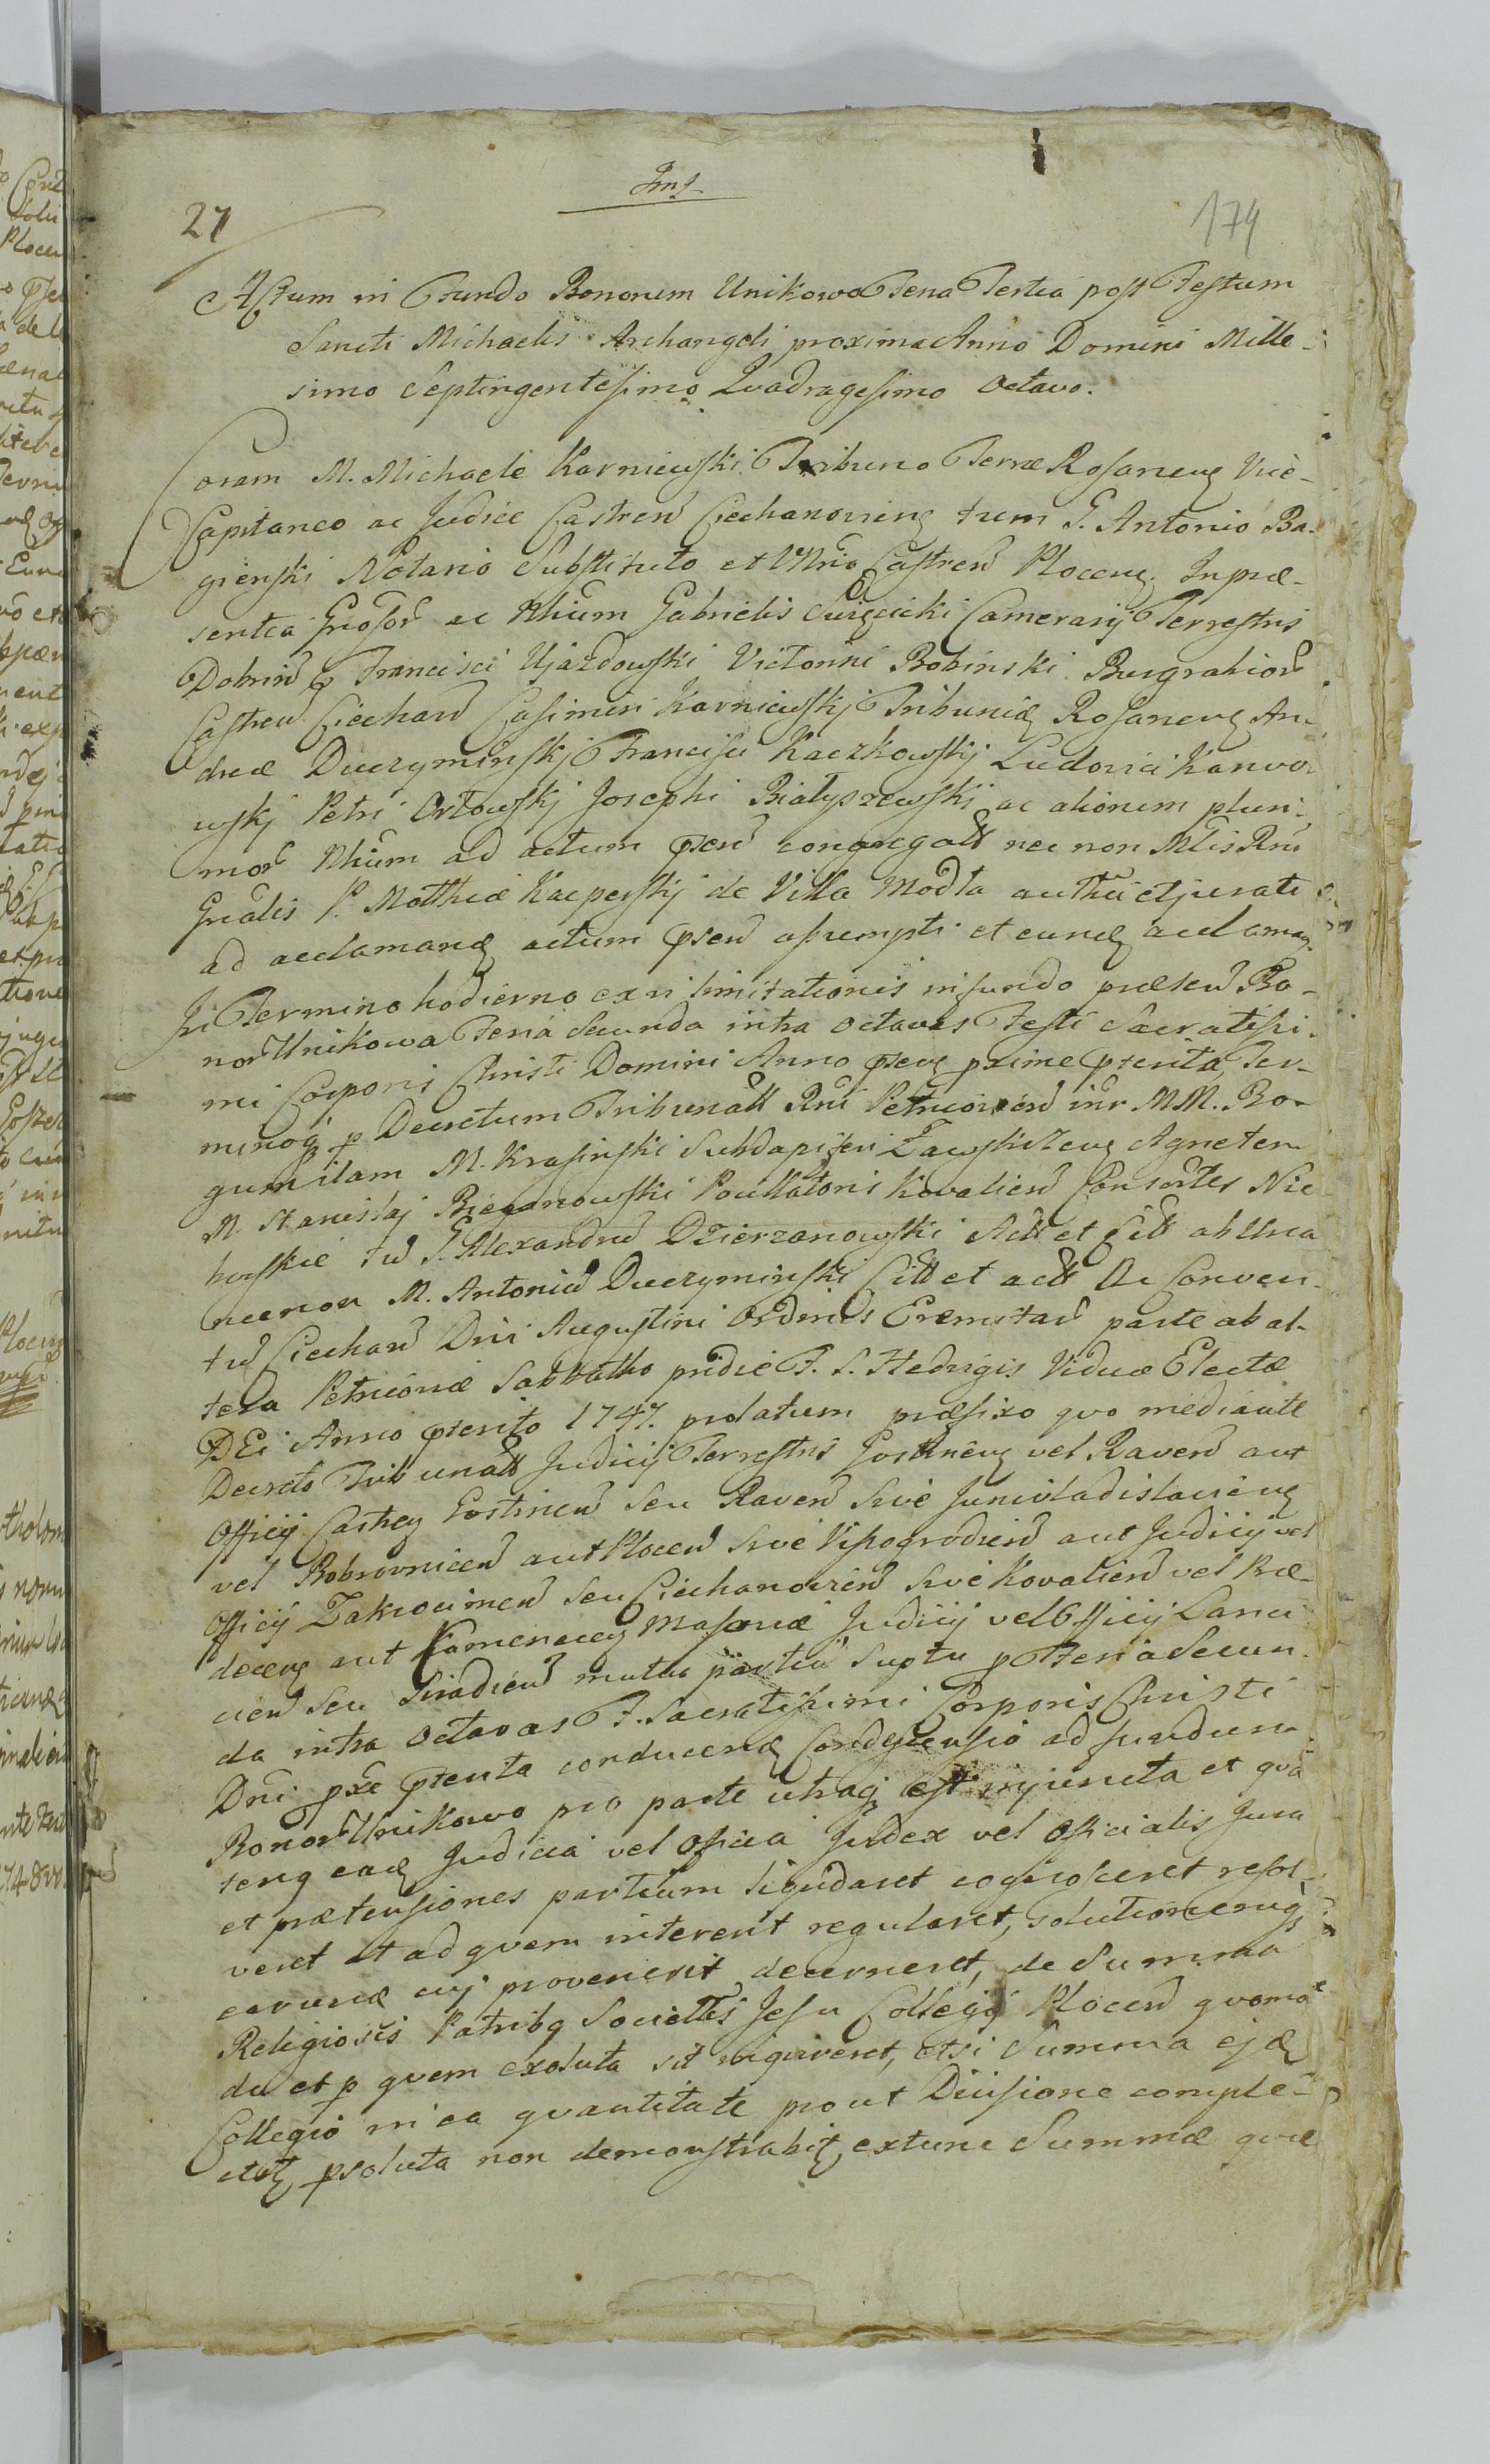 Imt
27
174
Actum in Fundo Bonorum Unikowo Feria Tertia post Festum
Sancti Michaelis Archangeli proxima Anno Domini Mille-
simo Septingentesimo Quadragesimo Octavo.
Coram M. Michaele Karniewski Tribuno Terræ Rosanens Vice-
Capitaneo ac Judice Castren Ciechanoviens tum G. Antonio Ba-
gienski Notario Substituto et Castren Plocens. In præ-
sentia Gnosor ac Nlium Gabrielis Swięcicki Camerarij Terrestris
Dobrin Francisci Ujazdowski Victorini Bobinski Burgrabior
Castren Ciechan Casimiri Karniewskj Tribunid Rosanens An-
dreæ Duczyminskj Francisci Kaczkowskj Ludovici Karwo-
wskj Petri Orłowskj Josephi Białyszewskj ac aliorum pluri-
mor Nlium ad actum psen congregatt nec non Mtis Rnii
Gnralis P. Matthiæ Kacperskj de Villa Modła authci et jurati
ad acclamand actum psen assumpti et eund acclaman.
In Termino hodierno ex vi limitationis in fundo præsen Bo-
nor Unikowa Feria Secunda intra octavas Festi Sacratissi-
mi Corporis Christi Domini Anno psens pxime pterita, Ter-
minoq p Decretum Tribunall Rni Petricovien inr MM. Bo-
gumilam M. Krasinski Subdapiferi Zawskrzens Agnetem
M. Stanislaj Bieganowski Pocillatoris Kovalien Consortes Nie-
borskie tu G. Alexandru Dzierzanowski Actt et Citt ab una
necnon M. Antoniu Duczyminski Citt et actt Ac Conven-
tu Ciechan Dni Augustini Ordinis Eremitar parte ab al-
tera Petricoviæ Sabbatho pridie F. S. Hedvigis Viduæ Electæ
DEi Anno pterito 1747. prolatum præfixo quo mediante
Decreto Tribunall Judicij Terrestris Gostinens vel Raven aut
Officij Castren Gostinen seu Raven sive Junivladislaviens
vel Bobrovnicen aut Plocen sive Vissogrodien aut Judicij vel
Officij Zakrocimen seu Ciechanovien sive Kovalien vel Bre-
decens aut Kamenecen Masoviæ Judicij vel Officij Lanci-
cien seu Siradien mutuo partiu sumptu p Feria Secun-
da intra Octavas F. Sacratissimi Corporis Christi
Dni pxe pterita conducend Condescensio ad fundum
Bonor Unikowo pro parte utraq est injuncta et qua-
tenq ead Judicia vel officia Judex vel Officialis Jura
et prætensiones partium liquidaret cognosceret resol-
veret et ad quem intererit regularet, solutionemq
earund cuj provenerit decerneret, de Summa
Religiosis Patribq Societtis Jesu Collegij Plocen quomo-
do et p quem exoluta sit inquireret, etsi Summa ejd
Collegio in ea quantitate prout Divisione comple-
ctet psoluta non demonstrabit extunc Summæ quæ